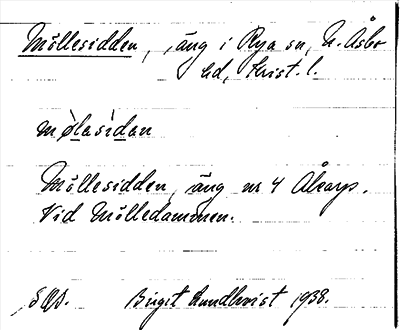 Möllesidden, äng i Rya sn, N. Åsbo
hd, Krist. l.
møl̀asìdan
Möllesidden, äng nr 4 Åkarp.
Vid Mölledammen.
Birgit Lundkvist 1938.